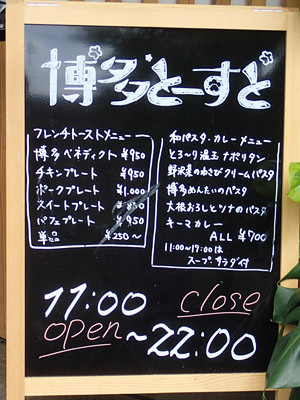 博多とーすと
フレンチトーストメニュー
博多ベネディクト ¥950
チキンプレート ¥950
ポークプレート ¥1,000
スイートプレート ¥850
パフェプレート ¥950
単品 ¥250〜
和パスタ・カレーメニュー
とろ〜り温玉ナポリタン
野沢菜のわさびクリームパスタ
博多めんたいのパスタ
大根おろしとツナのパスタ
キーマカレー
ALL ¥900
11:00〜17:00は
スープ、サラダ付
11:00 close
open 〜22:00